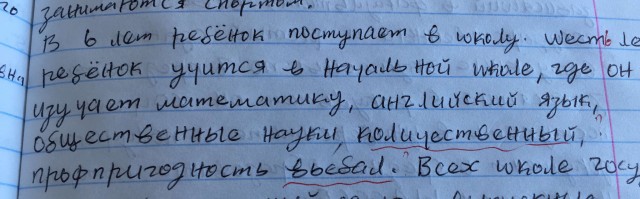 занимаются спортом.
В 6 лет ребёнок поступает в школу. Шесть ле
ребёнок учится в Начальной школе, где он
изучает математику, английский язык,
общественные науки, количественный, ?
профпригодность выебал. Всех школе госу